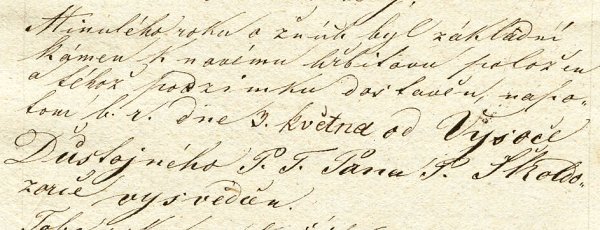 Minulého roku o žních byl základní
kámen k novému hřbitovu položen
a téhož podzimku dostavěn, napo-
tom b. r. dne 3. května od Vysoce
Důstojného P. T. Pana P. Školdo-
zorce vysvěcen.